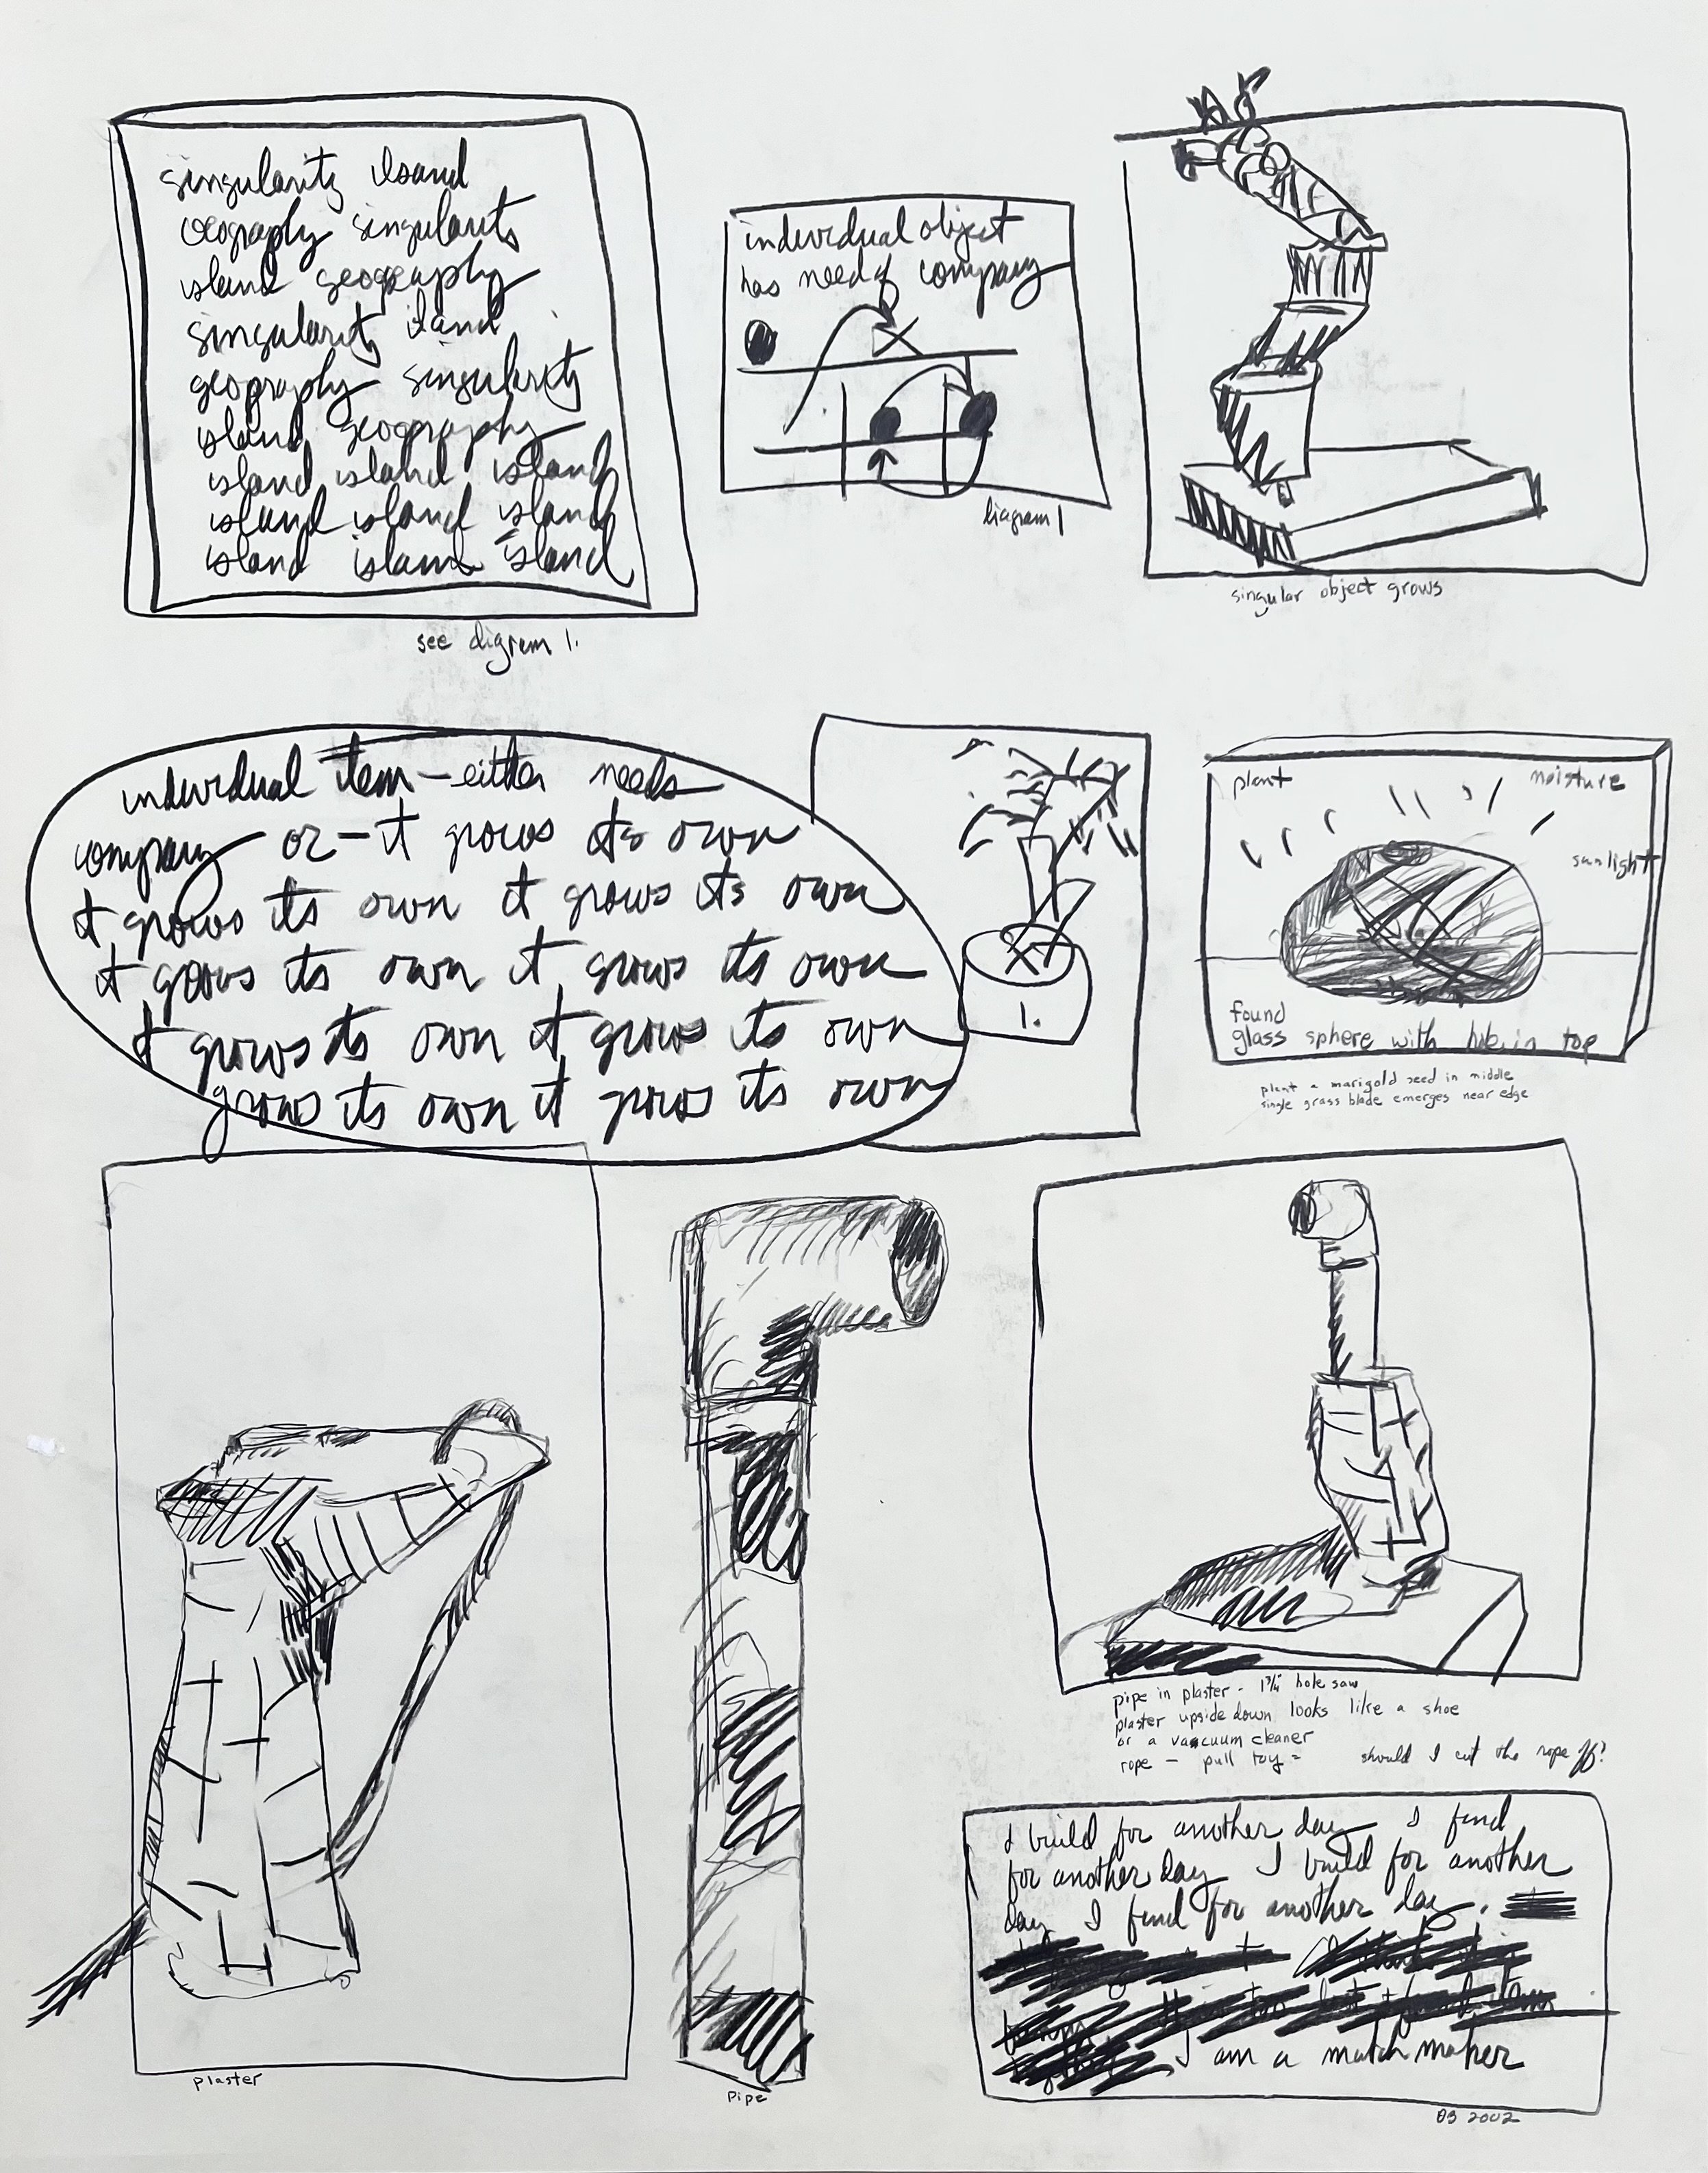 singularity island
geography singularity
island geography
singularity island
geography singularity
island geography
island island island
island island island
island island island
see digram 1.
individual object
has need of company
diagram 1
singular object grows
individual item – either needs
company or – it grows its own
it grows its own it grows its own
it grows its own it grows its own
it grows its own it grows its own
grows its own it grows its own
1.
plant
moisture
sunlight
found
glass sphere with hole in top
plant a marigold seed in middle
single grass blade emerges near edge
plaster
pipe
pipe in plaster - 1 3/4" hole saw
plaster upside down looks like a shoe
or a vacuum cleaner
rope – pull toy = should I cut the rope off?
I build for another day I find
for another day I build for another
day I find for another day.
I am a match maker
2002